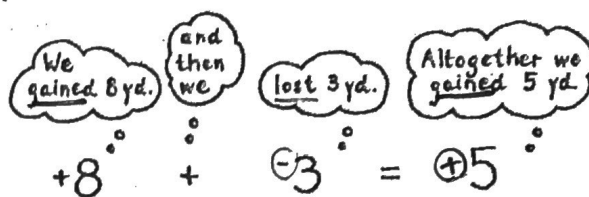 We
gained 8 yd.
and
then
we
lost 3 yd.
Altogether we
gained 5 yd
+8 + -3 = +5